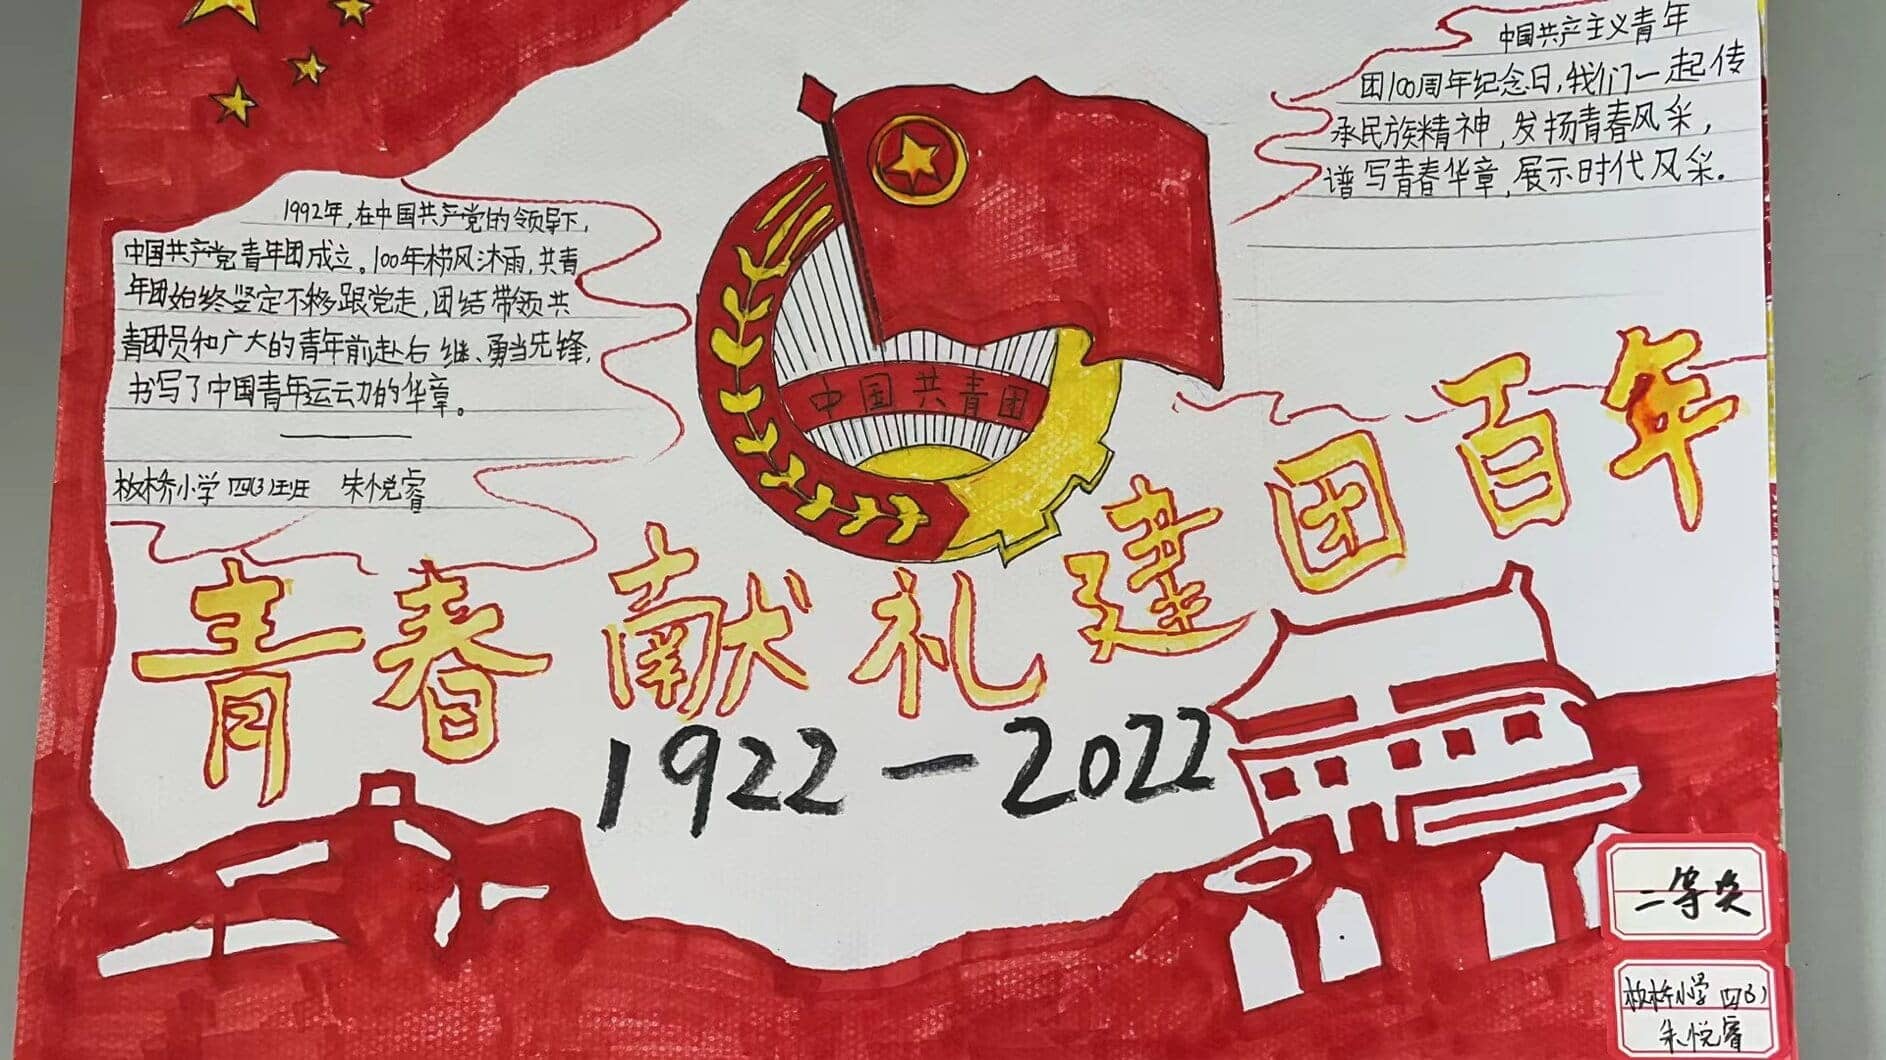 1992年,在中国共产党的领导下,
中国共产党青年团成立。100年栉风沐雨,共青
年团始终坚定不移跟党走,团结带领共
青团员和广大的青年前赴后继、勇当先锋,
书写了中国青年运动的华章。
板桥小学 四(3)班 朱悦睿
中国共产主义青年
团100周年纪念日,我们一起传
承民族精神,发扬青春风采,
谱写青春华章,展示时代风采.
中国共青团
青春献礼建团百年
1922-2022
二等奖
板桥小学 四(3)
朱悦睿